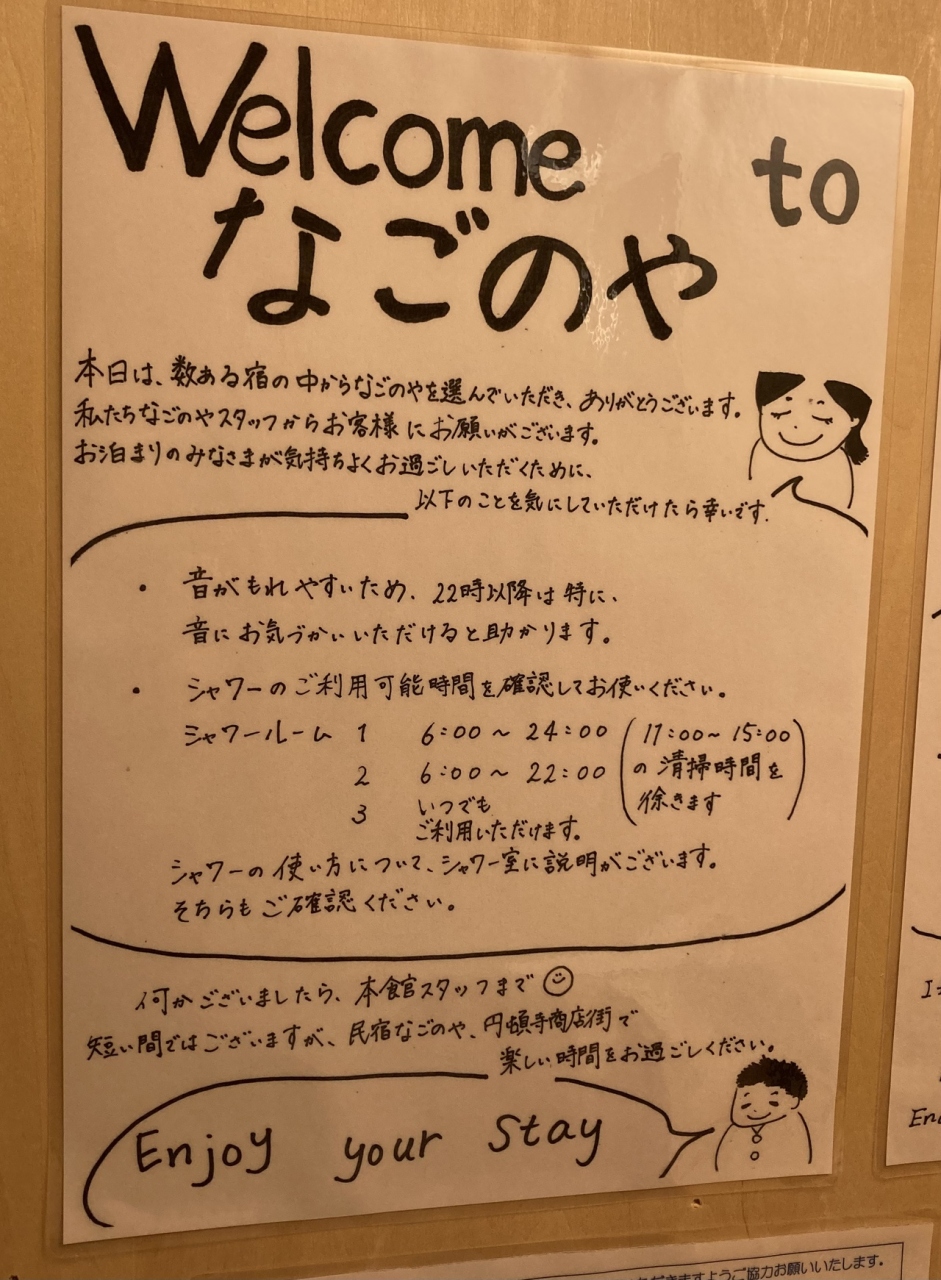 Welcome to
なごのや
本日は、数ある宿の中からなごのやを選んでいただき、ありがとうございます。
私たちなごのやスタッフからお客様にお願いがございます。
お泊まりのみなさまが気持ちよくお過ごしいただくために、
以下のことを気にしていただけたら幸いです.
・ 音がもれやすいため、22時以降は特に、
音にお気づかいいただけると助かります。
・ シャワーのご利用可能時間を確認してお使いください。
シャワールーム 1 6:00 ~ 24:00 (11:00~ 15:00
2 6:00 ~ 22:00 の清掃時間を
3 いつでも 徐きます)
ご利用いただけます。
シャワーの使い方について、シャワー室に説明がございます。
そちらもご確認ください。
何かございましたら、本館スタッフまで
短い間ではございますが、民宿なごのや、円頓寺商店街で
楽しい時間をお過ごしください。
Enjoy your Stay
ますようご協力お願いいたします。